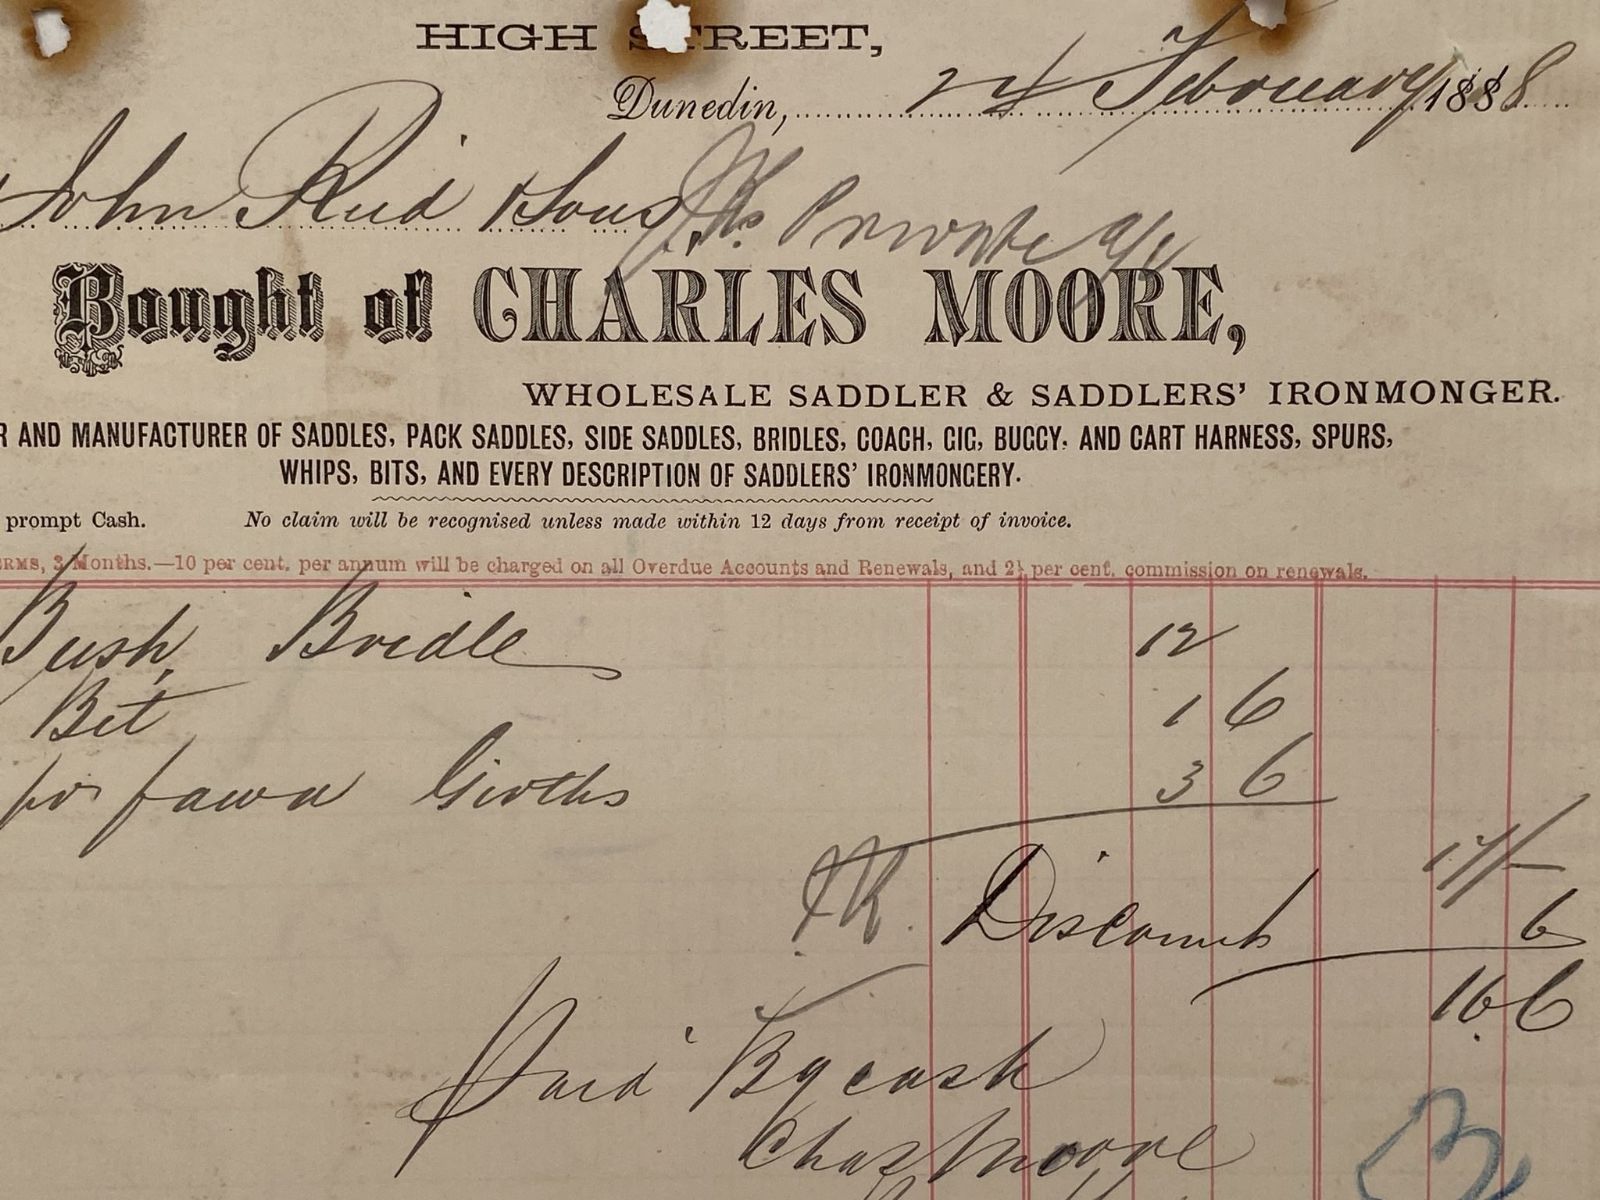 HIGH STREET,
Dunedin, 24 February 1888
John Reid & Sons J.R's Private a/c
Bought of CHARLES MOORE,
WHOLESALE SADDLER & SADDLERS' IRONMONGER.
R AND MANUFACTURER OF SADDLES, PACK SADDLES, SIDE SADDLES, BRIDLES, COACH, GIG, BUGGY. AND CART HARNESS, SPURS,
WHIPS, BITS, AND EVERY DESCRIPTION OF SADDLERS' IRONMONGERY.
prompt Cash. No claim will be recognised unless made within 12 days from receipt of invoice.
ERMS, 3 Months.—10 per cent. per annum will be charged on all Overdue Accounts and Renewals, and 2½ per cent. commission on renewals.
Bush Bridle 12
Bit 1 6
pr fawn Girths 3 6
17/-
JR. Discount 6
16 6
Paid By cash
Chas Moore